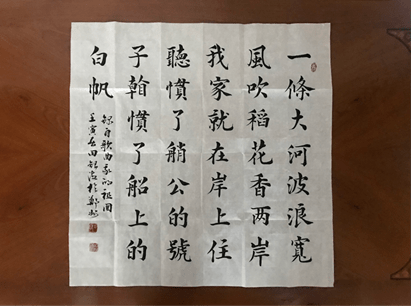 一條大河波浪寬
風吹稻花香两岸
我家就在岸上住
聽慣了艄公的號
子翰慣了船上的
白帆
錄自歌曲我的祖国
壬寅春田於鄭州